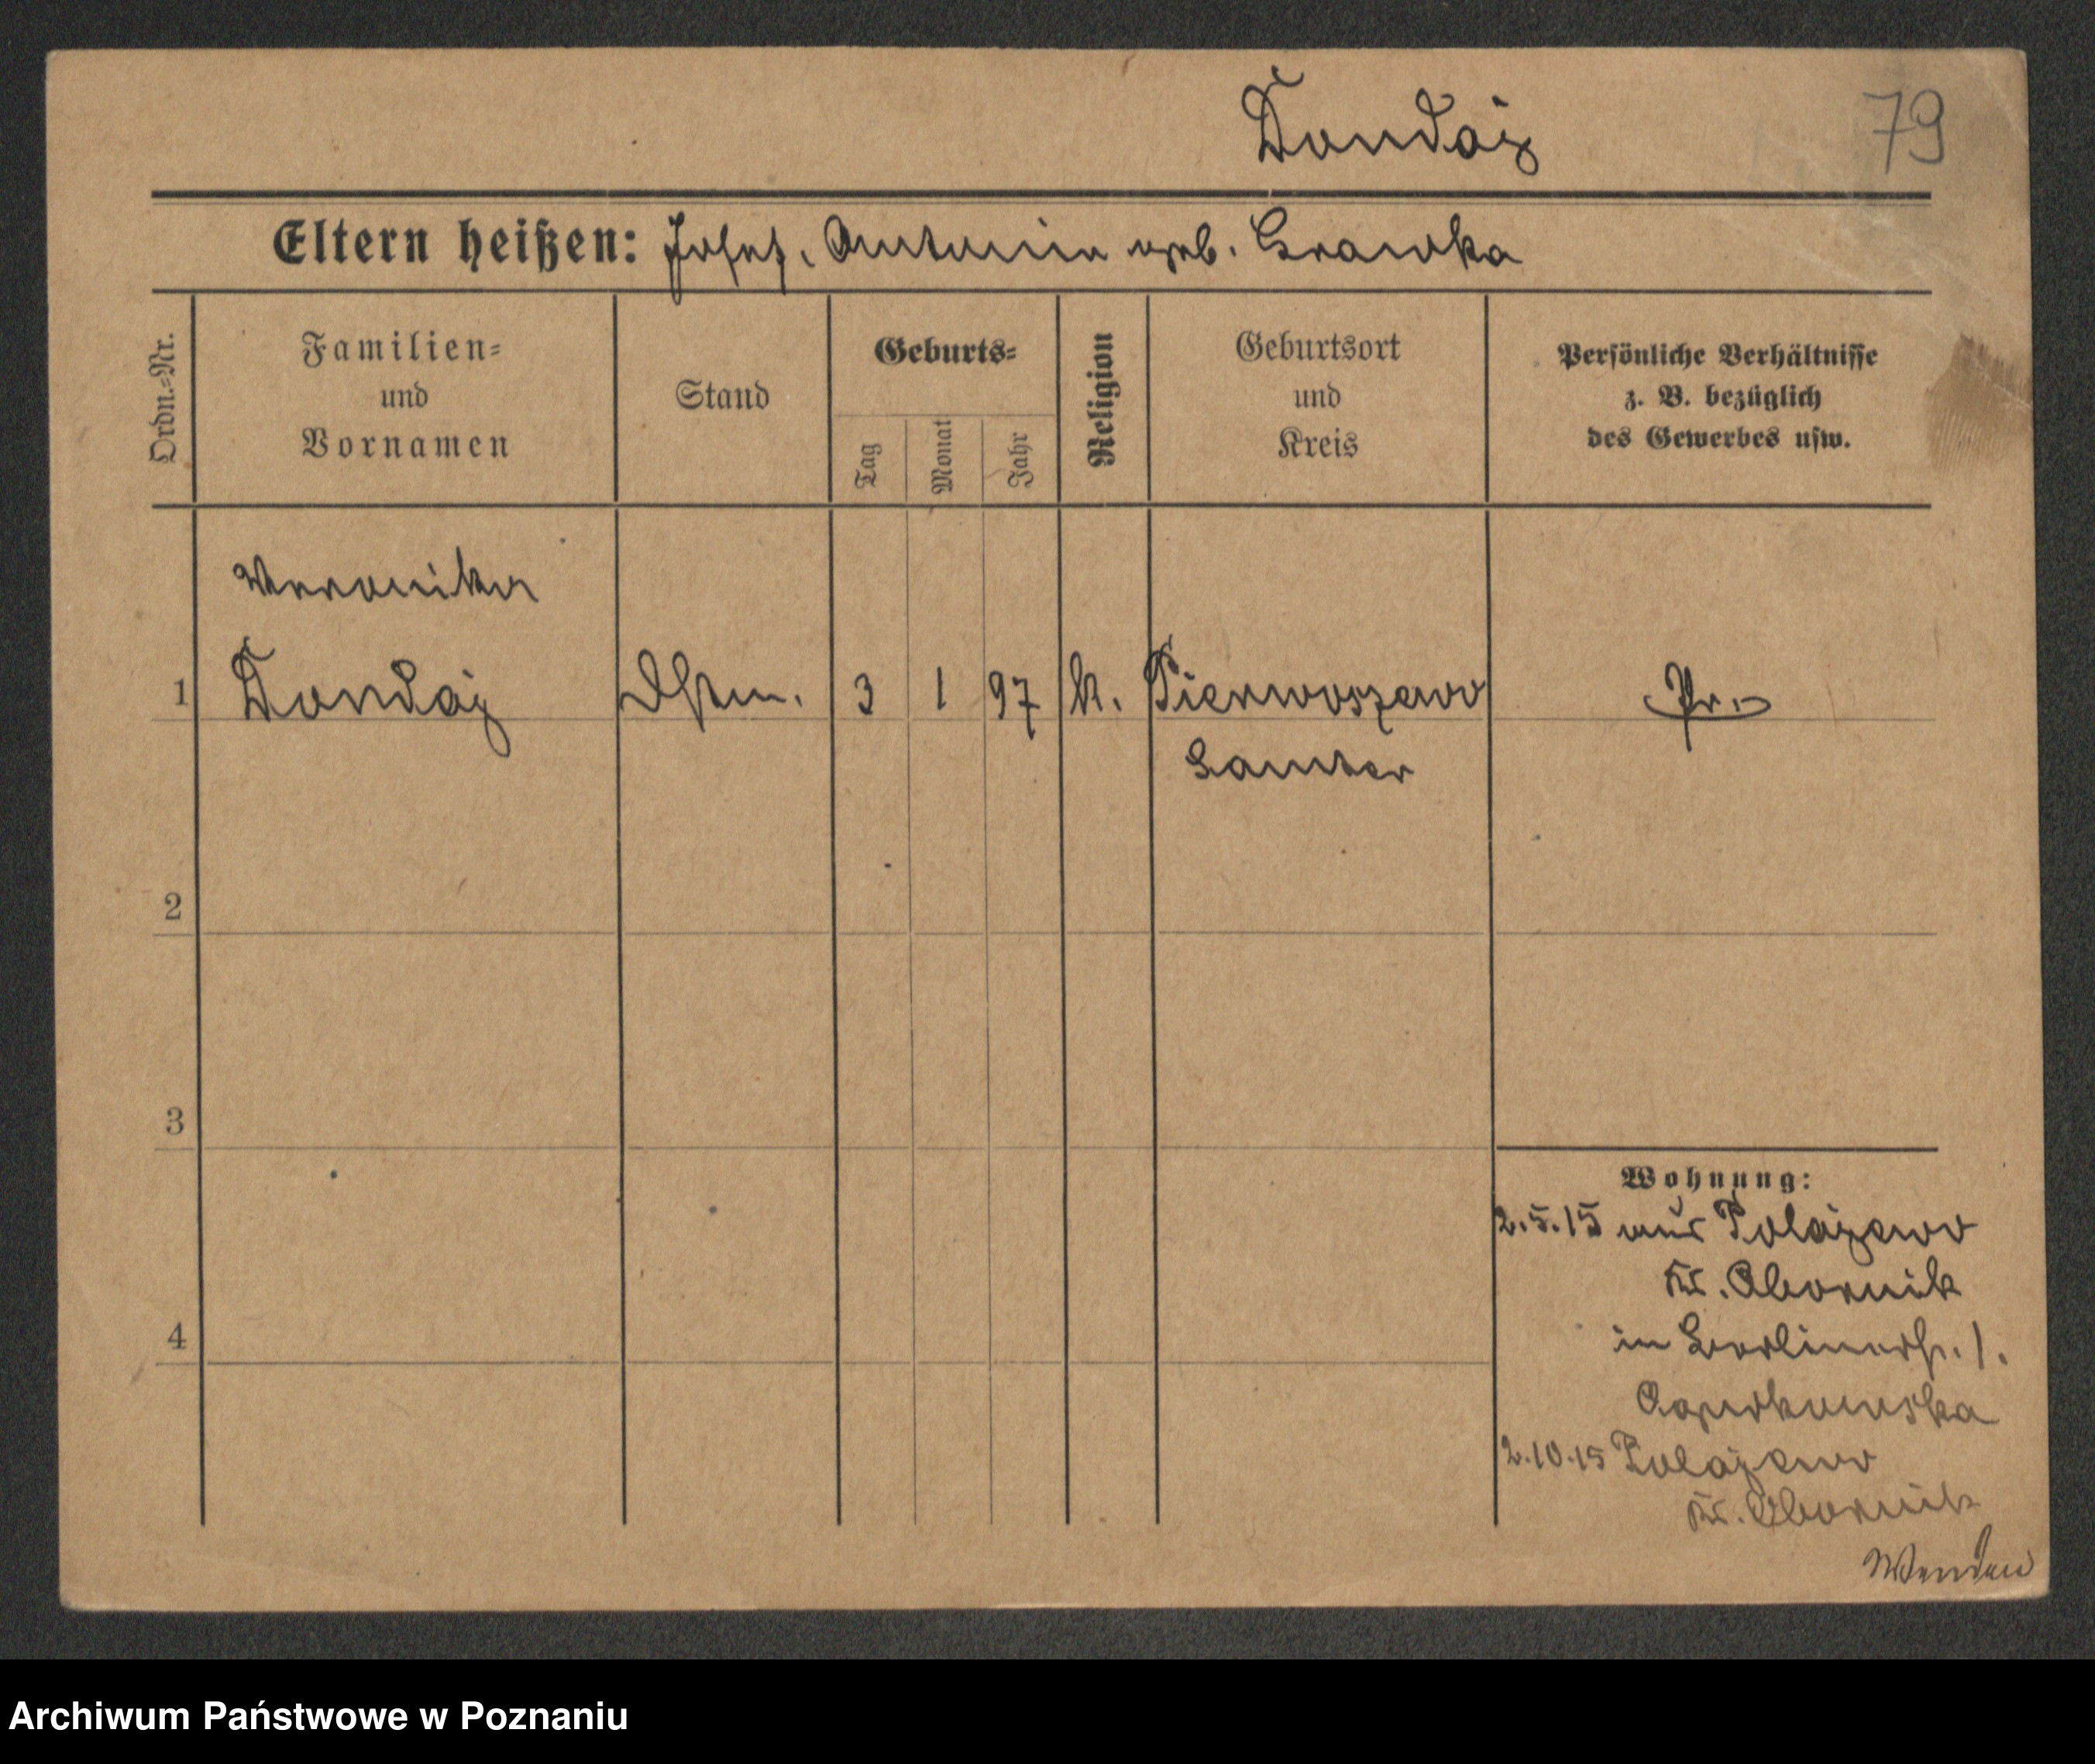 Dondaj
79
Eltern heißen: Josef, Antonia geb. Grawka
Ordn.-Nr.
Familien-
und
Vornamen
Stand
Geburts-
Tag
Monat
Jahr
Religion
Geburtsort
und
Kreis
Persönliche Verhältnisse
z. B. bezüglich
des Gewerbes usw.
Veronika
1 Dondaj Dstm. 3 1 97 k. Pierwoszewo Pr.
Samter
2
3
4
Wohnung:
2.5.15 aus Polajewo
Kr. Obornik
in Berlinerstr. 1.
2.10.15 Polajewo
Kr. Obornik
Wenden
Archiwum Państwowe w Poznaniu